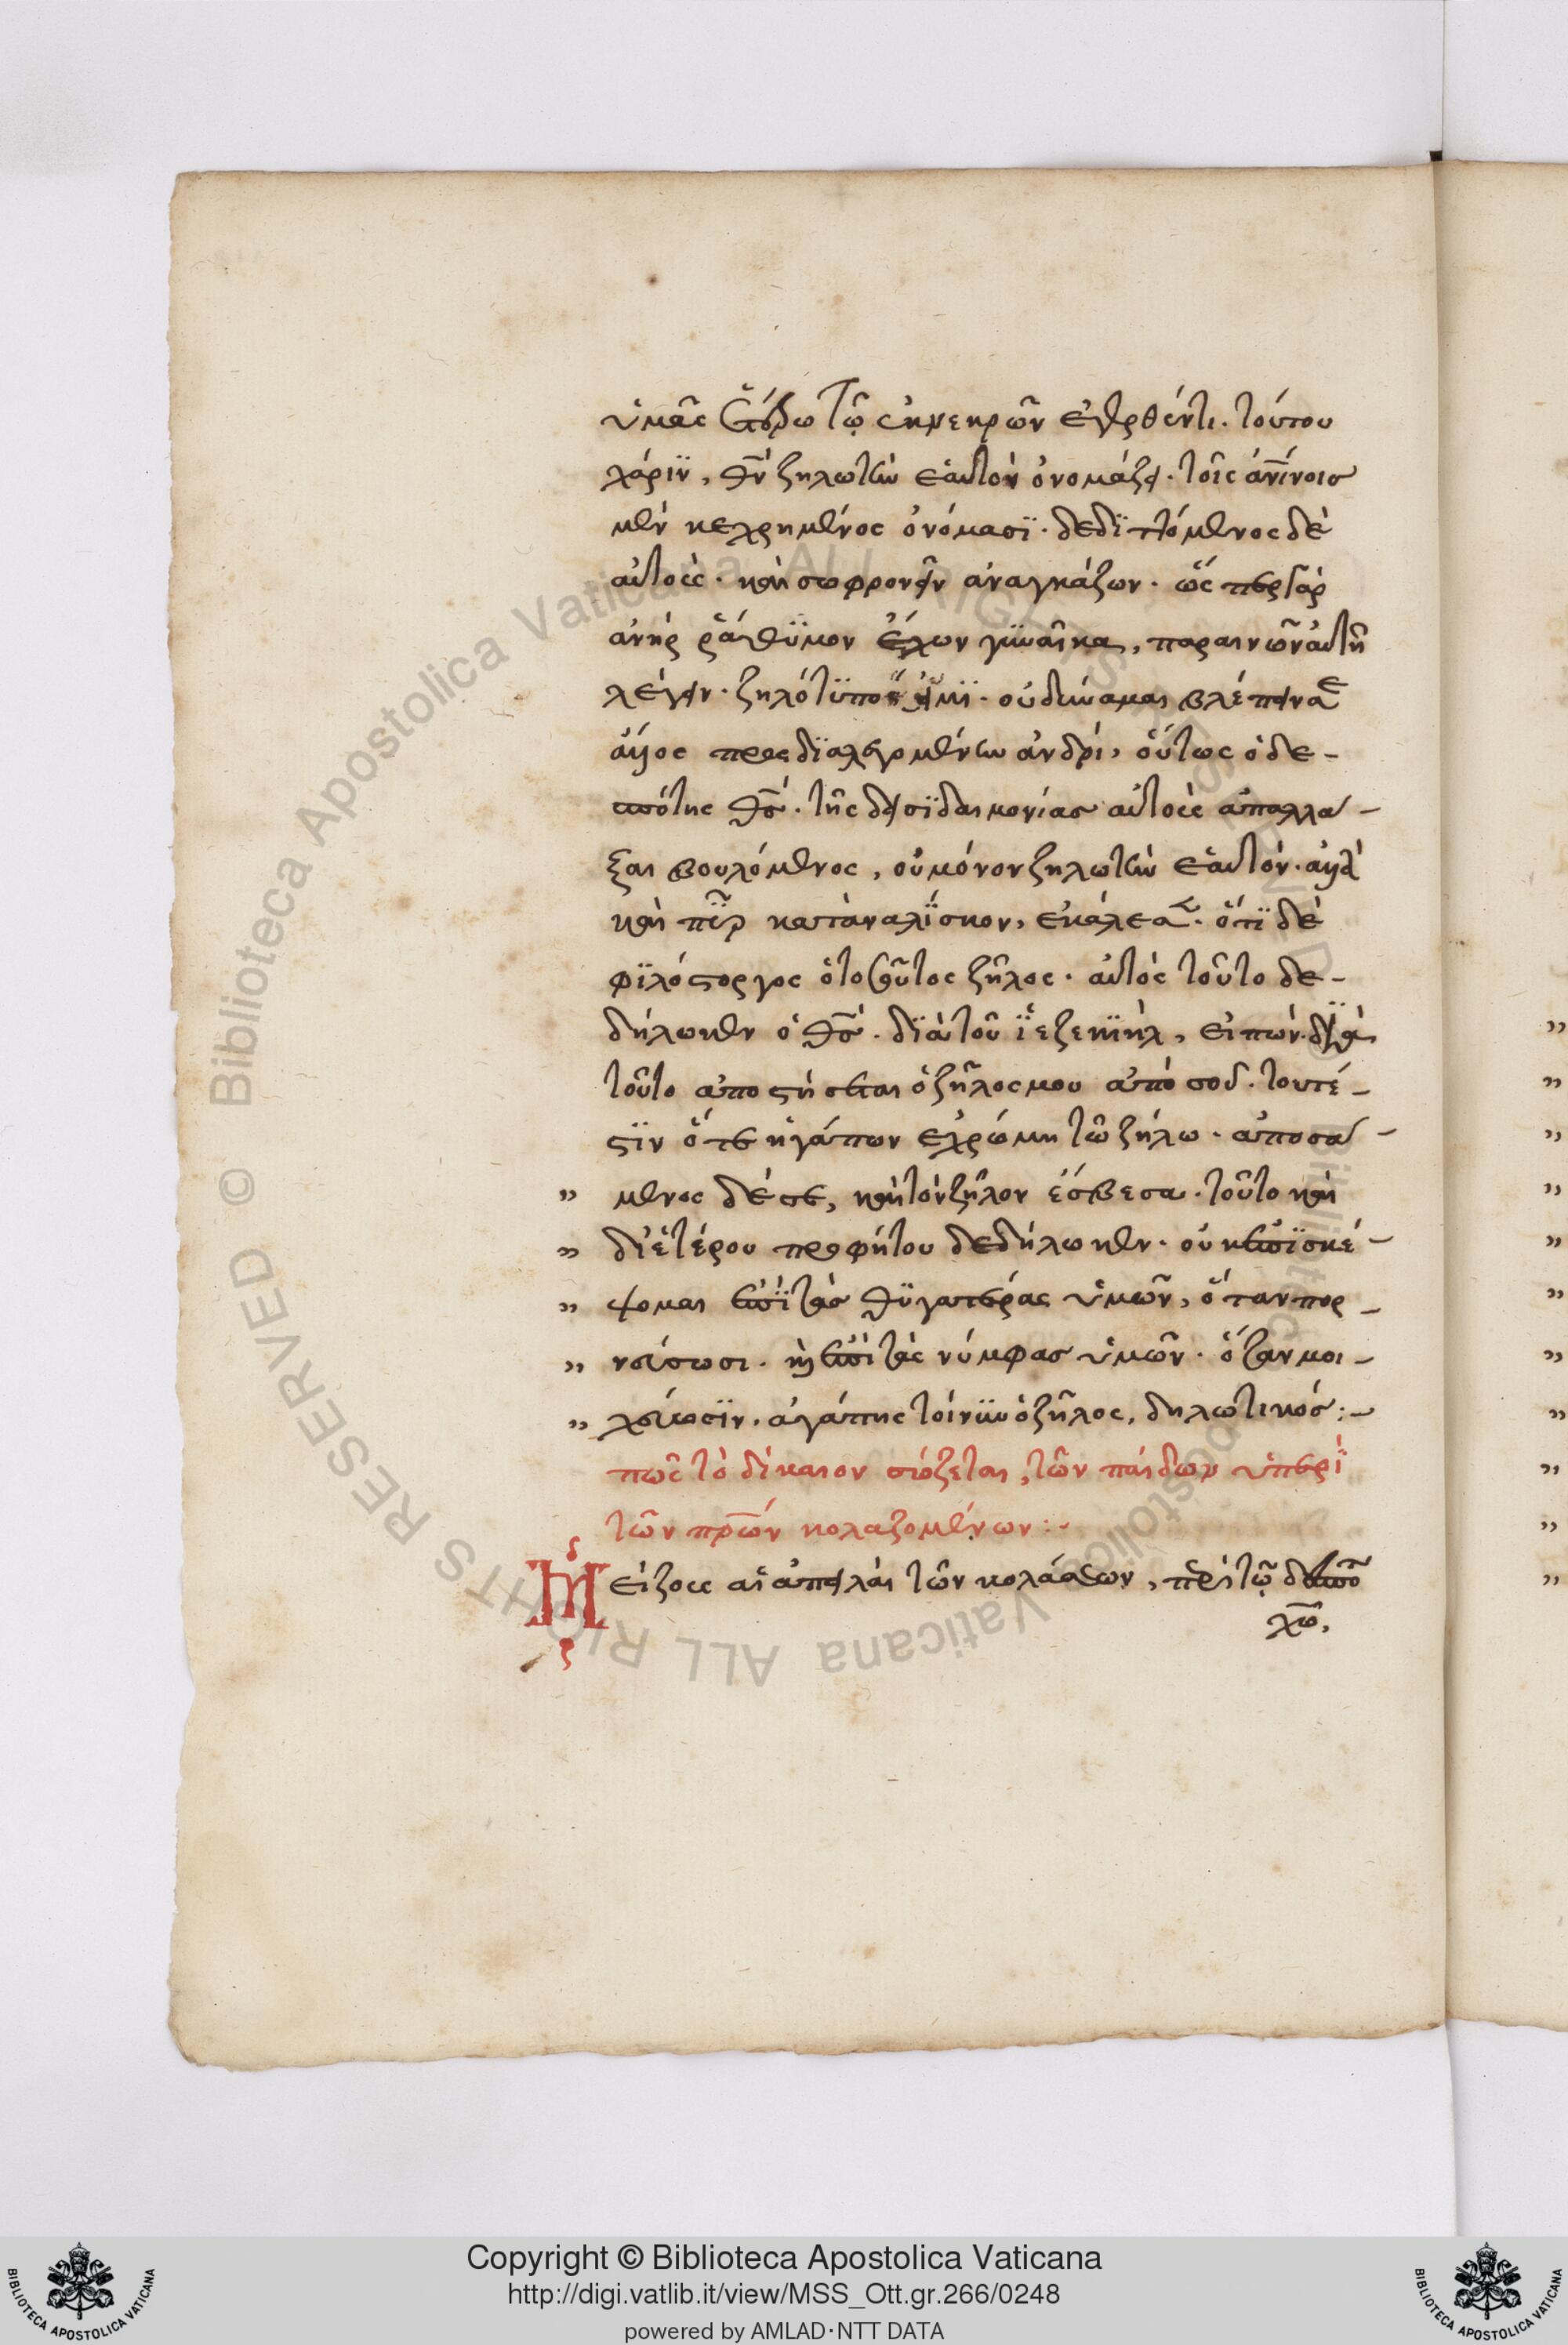 ὑμᾶς ἑτέρω τῷ ἐκ νεκρῶν ἐγερθέντι. τούτου
χάριν, θν ζηλωτὴν ἑαυτὸν ὀνομάζει. τοῖς ἀνίνοις
μὲν κεχρημένος ὀνόμασϊ. δεδϊττόμενος δὲ
αὐτοὺς. καὶ σωφρονεῖν ἀναγκάζων. ὥς περ γὰρ
ἀνὴρ ῥάθϋμον ἔχων γϋναῖκα, παραινῶν αὐτῆ
λέγειν. ζηλότϋπος εἰμϊ. οὐ δύναμαι βλέπειν σε
ἄλλος προσδϊαλεγομένην ἀνδρί, οὕτως ὁ δε-
σπότης θς. τῆς δεισϊδαιμονίας αὐτοὺς ἀπαλλα-
ξαι βουλόμενος, οὐ μόνον ζηλωτὴν ἑαυτὸν. ἀλλὰ
καὶ πῦρ καταναλΐσκον, ἐκάλεσεν. ὅτϊ δὲ
φϊλόστοργος ὁ τοιοῦτος ζῆλος. αὐτὸς τοῦτο δε-
δήλωκεν ὁ θς. δϊὰ τοῦ ϊεζεκϊὴλ, εἰπών. δϊὰ
τοῦτο ἀποστήσεται ὁ ζῆλος μου ἀπὸ σοῦ. τουτέ-
στϊν ὅτε ἠγάπων ἐχρώμη τῶ ζήλω. ἀποσα-
μενος δέ σε, καὶ τὸν ζῆλον ἔσβεσα. τοῦτο καὶ
δι' ἑτέρου προφήτου δεδήλωκεν. οὐκ ἐπϊσκέ-
ψομαι ἐπϊ τὰς θϋγατέρας ὑμῶν, ὅταν πορ-
νεύσωσι. καὶ ἐπὶ τὰς νύμφας ὑμῶν. ὅταν μοι-
χεύωσϊν. ἀγάπης τοίνϋν ὁ ζῆλος, δηλωτικός:-
πῶς τὸ δίκαιον σώζεται, τῶν παίδων ὑπερϊ
τῶν πρῶν κολαζομένων:-
Μείζους αἱ ἀπειλαὶ τῶν κολάσεων, πὰρὶ τῷ δεσπο
χω,
Copyright © Biblioteca Apostolica Vaticana
http://digi.vatlib.it/view/MSS_Ott.gr.266/0248
powered by AMLAD·NTT DATA